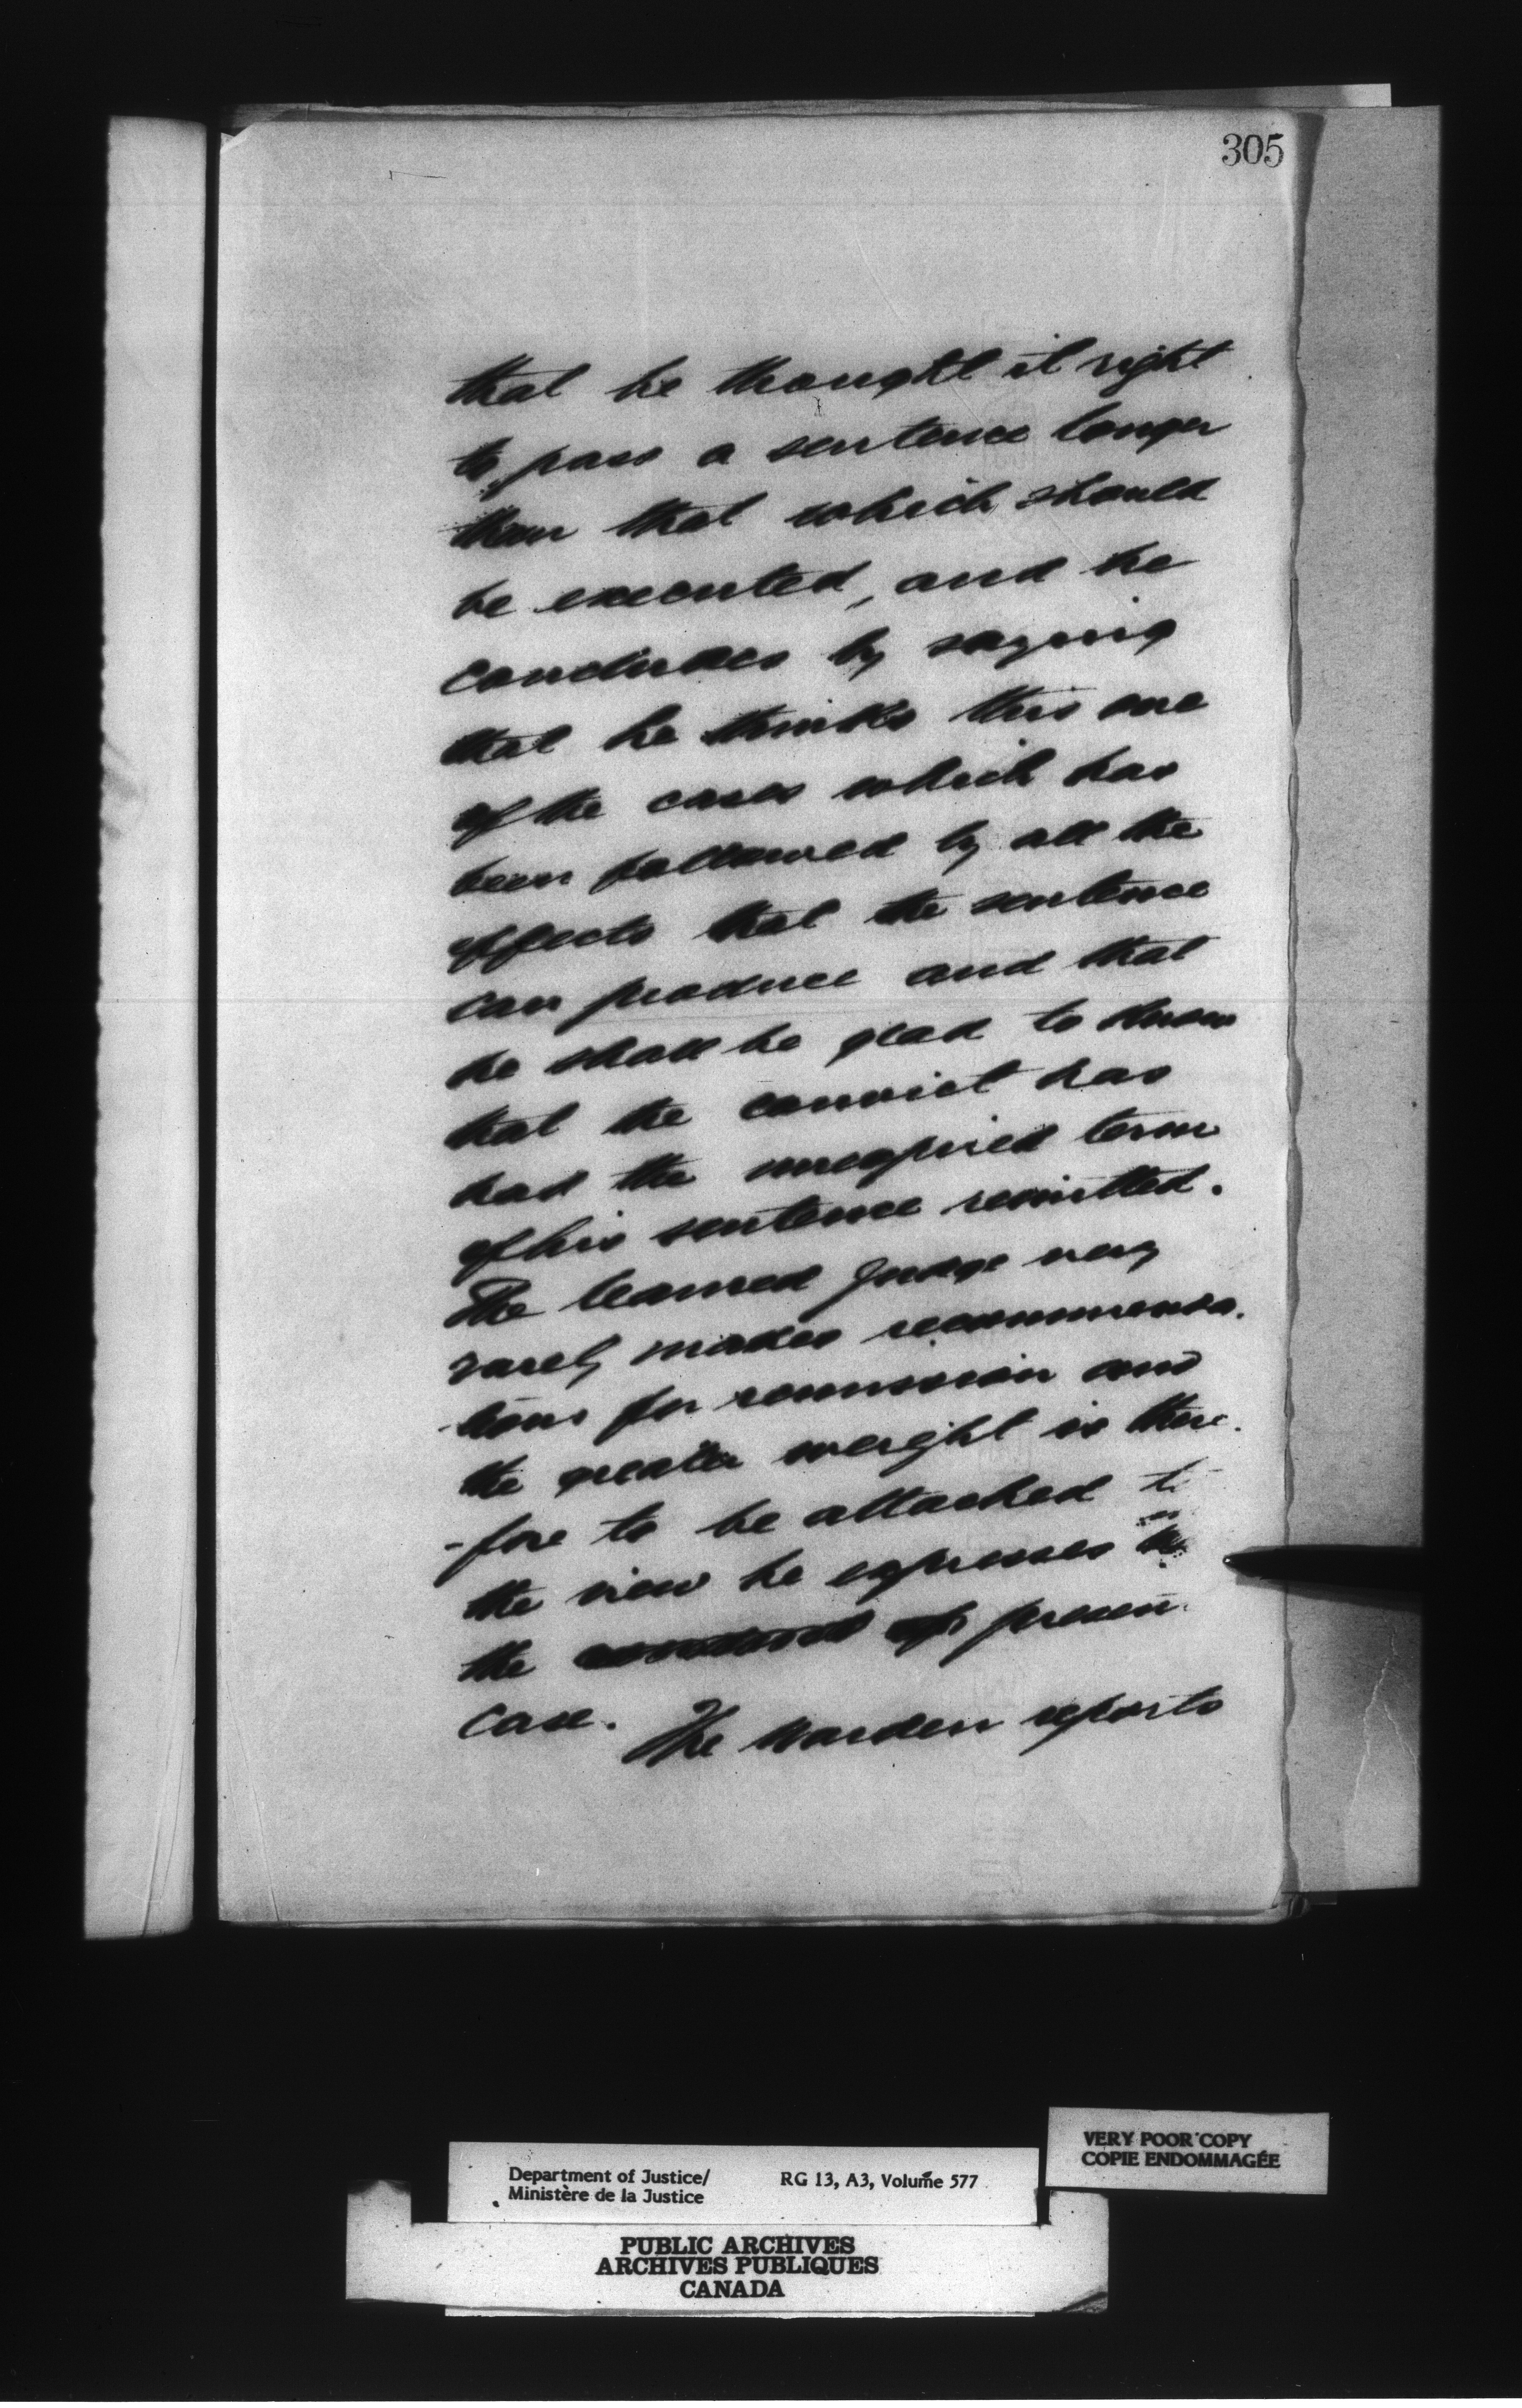 305
that he thought it right
to pass a sentence longer
than that which should
be executed, and he
concludes by saying
that he thinks this one
of the cases which has
been followed by all the
effects that the sentence
can produce and that
he shall be glad to know
that the convict has
had the unexpired term
of his sentence remitted.
The learned Judge very
rarely makes recommenda-
-tions for remission and
the greater weight is there-
-fore to be attached to
the view he expresses in
the presen
case. The Warden reports
VERY POOR COPY
COPIE ENDOMMAGÉE
Department of Justice/ RG 13, A3, Volume 577
Ministère de la Justice
PUBLIC ARCHIVES
ARCHIVES PUBLIQUES
CANADA